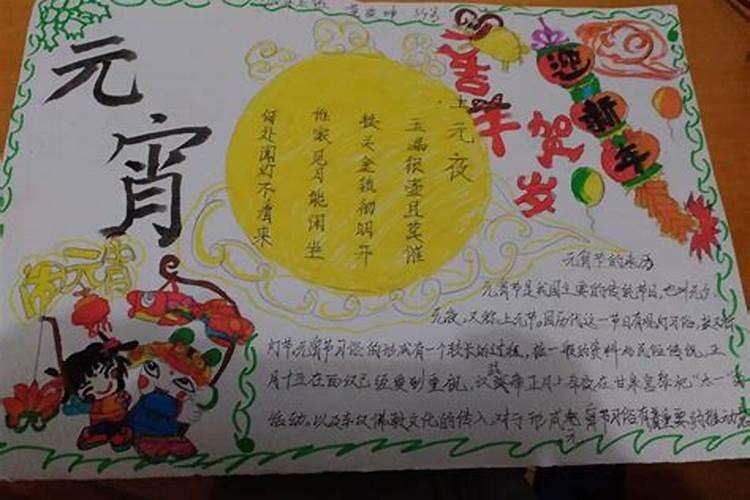 元宵
上元夜
玉漏银壶且莫催
铁关金锁彻明开
谁家见月能闲坐
何处闻灯不看来
喜羊
贺岁
迎新年
闹元宵
元宵节的来历
元宵节是我国主要的传统节日,也叫元夕、
元夜,又称上元节。因历代这一节日有观灯习俗,故又称
灯节元宵节习俗的形成有一个较长的过程,据一般的资料与民俗传说,正
月十五在西汉已经受到重视,汉武帝正月上辛夜在甘泉宫祭祀“太一”
活动。以及东汉佛教文化的传入,对于形成元宵节习俗有着重要的推动意